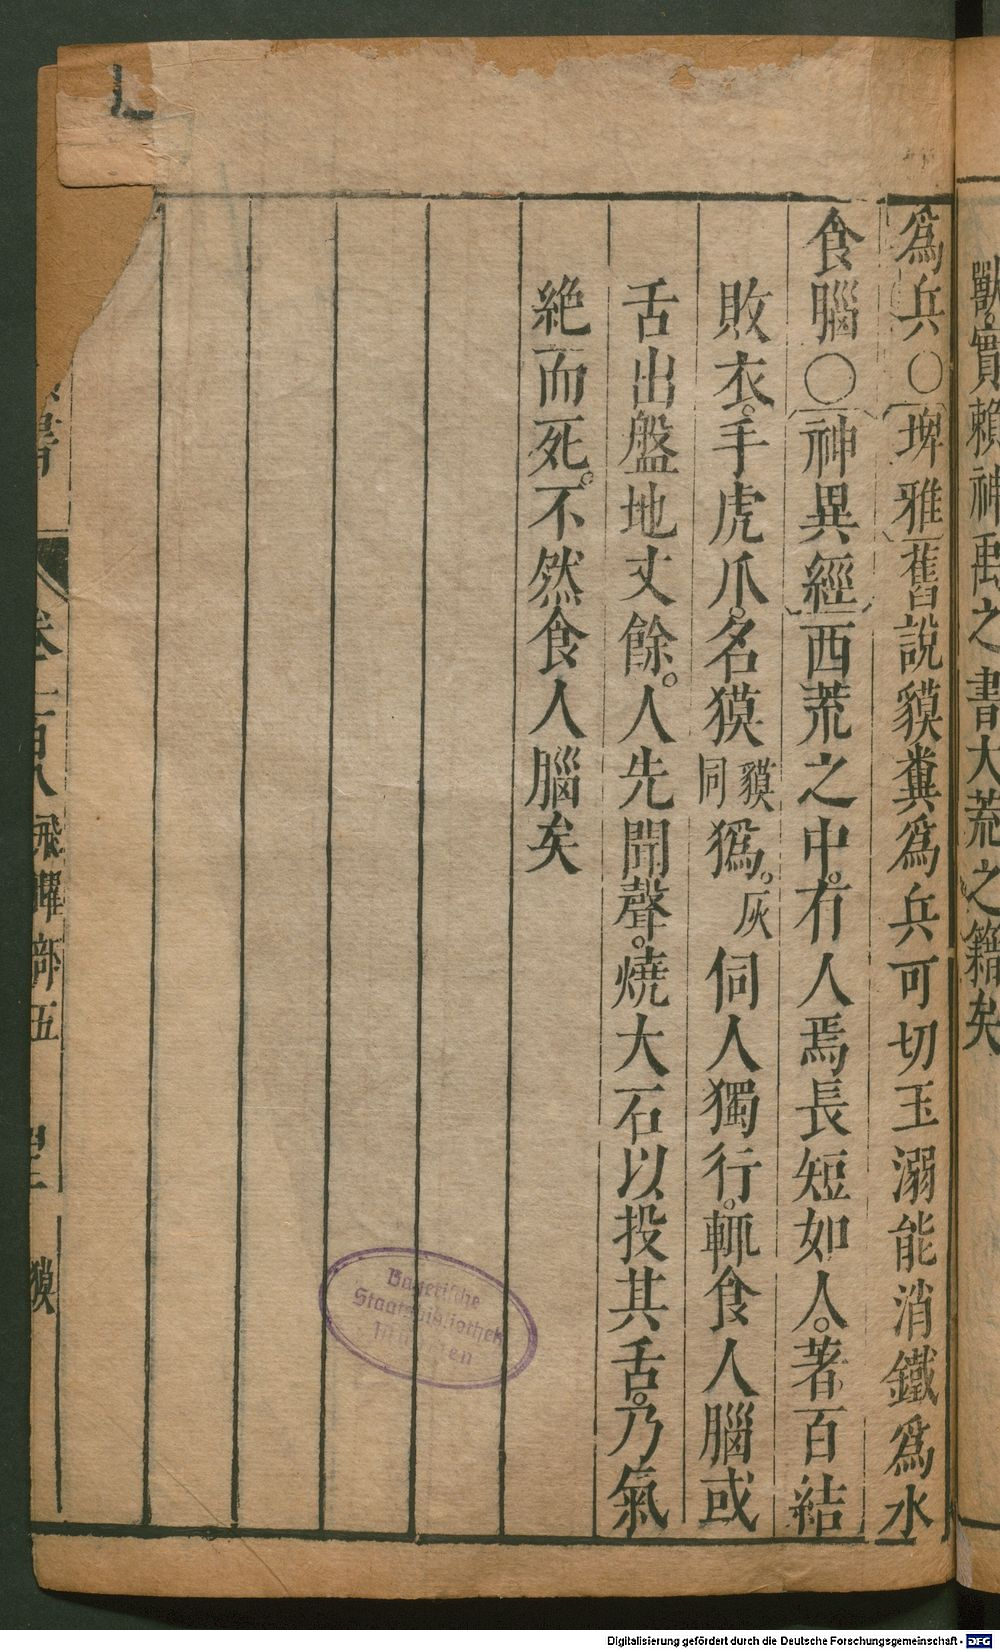 獸實賴神禹之書大荒之籍矣
爲兵〇埤雅舊說貘糞爲兵可切玉溺能消鐵爲水
食腦〇神異經西荒之中。有人焉長短如人。著百結
敗衣。手虎爪。名獏貘同獁。灰伺人獨行。輒食人腦或
舌出盤地丈餘。人先聞聲。燒大石以投其舌。乃氣
絶而死。不然食人腦矣
書
卷一百八 飛躍部五
獏
Bayerische
Staatsbibliothek
München
Digitalisierung gefördert durch die Deutsche Forschungsgemeinschaft - DFG